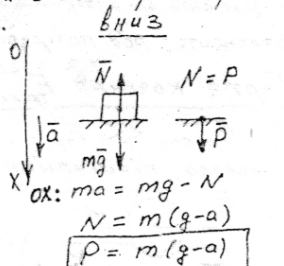 вниз
O
N̅ N = P
a̅ P̅
mg̅
X
OX: ma = mg - N
N = m(g-a)
P = m(g-a)